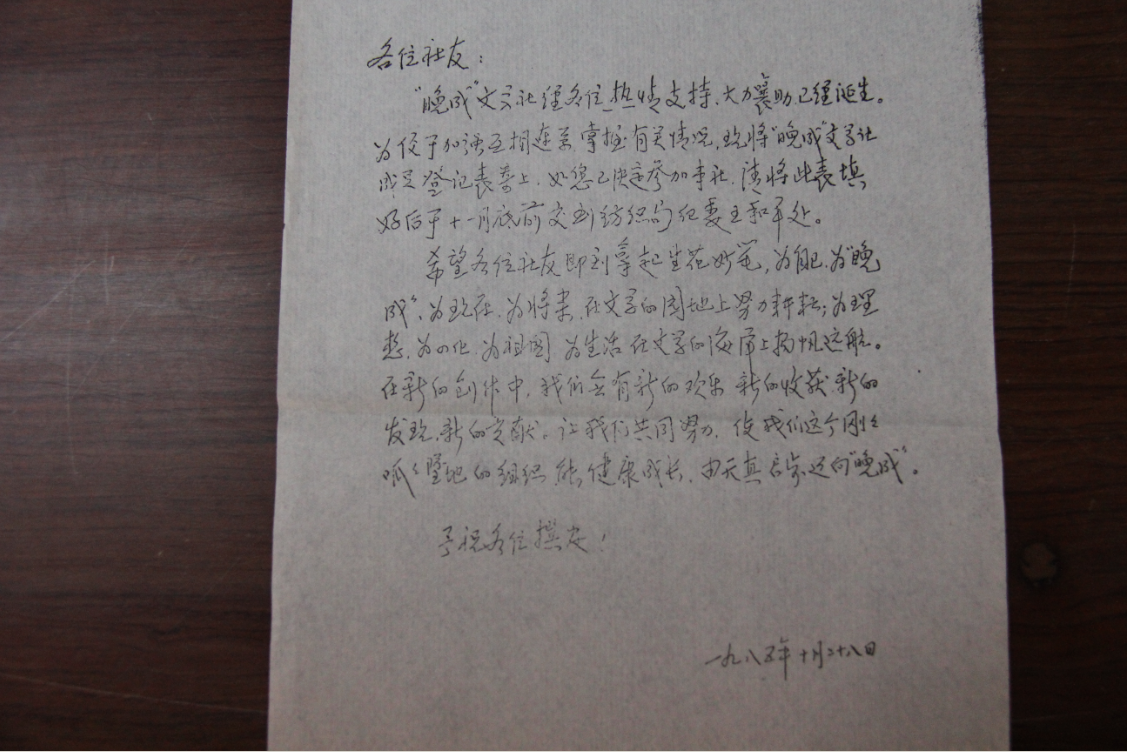 各位社友：
“晚成”文学社经各位热情支持、大力襄助,已经诞生。
为便于加强互相连系,掌握有关情况,现将“晚成”文学社
成员登记表寄上,如您已决定参加本社,请将此表填
好后于十一月底前交到纺织局纪委王和平处。
希望各位社友即刻拿起生花妙笔,为自己、为“晚
成”、为现在、为将来,在文学的园地上努力耕耘;为理
想、为四化、为祖国、为生活,在文学的海洋上扬帆远航。
在新的创作中,我们会有新的欢乐、新的收获、新的
发现、新的贡献。让我们共同努力,使我们这个刚刚
呱呱坠地的组织,能健康成长,由天真启步迈向“晚成”。
予祝各位撰安!
一九八五年十月二十八日